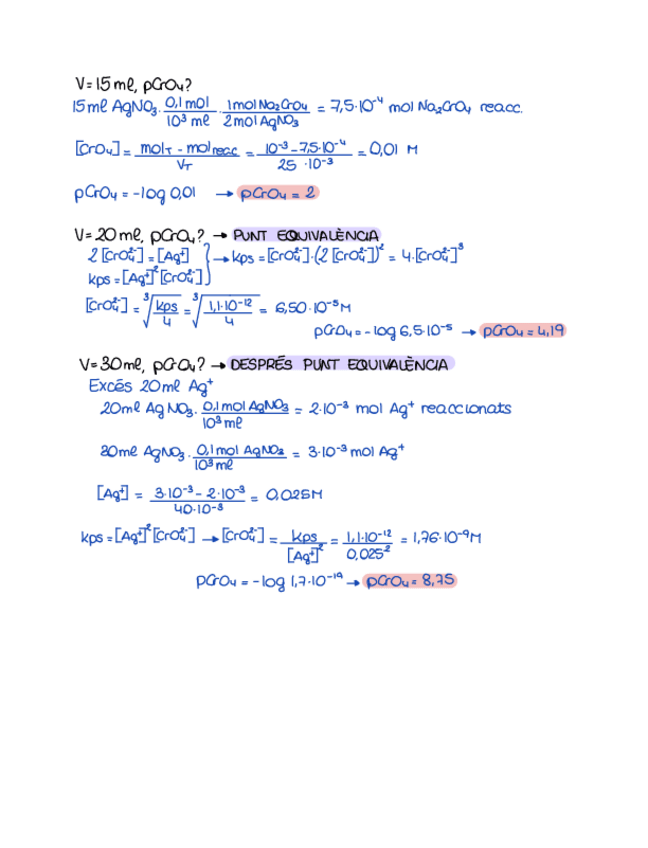 V=15ml, pCrO₄?
15ml AgNO₃ · 0,1 mol / 10³ ml · 1mol Na₂CrO₄ / 2mol AgNO₃ = 7,5·10⁻⁴ mol Na₂CrO₄ reacc.
[CrO₄] = mol_T - mol reacc / V_T = 10⁻³ - 7,5·10⁻⁴ / 25 ·10⁻³ = 0,01 M
pCrO₄ = -log 0,01 → pCrO₄ = 2
V=20ml, pCrO₄? → PUNT EQUIVALÈNCIA
2[CrO₄²⁻] = [Ag⁺] } → kps = [CrO₄²⁻]·(2[CrO₄²⁻])² = 4·[CrO₄²⁻]³
kps = [Ag⁺]²[CrO₄²⁻]
[CrO₄²⁻] = ∛(kps / 4) = ∛(1,1·10⁻¹² / 4) = 6,50·10⁻⁵ M
pCrO₄ = -log 6,5·10⁻⁵ → pCrO₄ = 4,19
V=30ml, pCrO₄? → DESPRÉS PUNT EQUIVALÈNCIA
Excés 20ml Ag⁺
20ml AgNO₃ · 0,1mol AgNO₃ / 10³ml = 2·10⁻³ mol Ag⁺ reaccionats
30ml AgNO₃ · 0,1mol AgNO₃ / 10³ml = 3·10⁻³ mol Ag⁺
[Ag⁺] = 3·10⁻³ - 2·10⁻³ / 40·10⁻³ = 0,025M
kps = [Ag⁺]²[CrO₄²⁻] → [CrO₄²⁻] = kps / [Ag⁺]² = 1,1·10⁻¹² / 0,025² = 1,76·10⁻⁹ M
pCrO₄ = -log 1,7·10⁻¹⁹ → pCrO₄ = 8,75